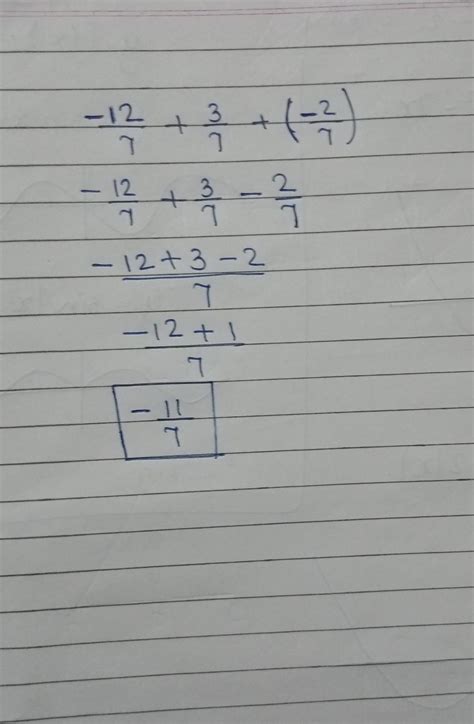 -12/7 + 3/7 + (-2/7)
- 12/7 + 3/7 - 2/7
- 12 + 3 - 2 / 7
-12 + 1 / 7
- 11/7